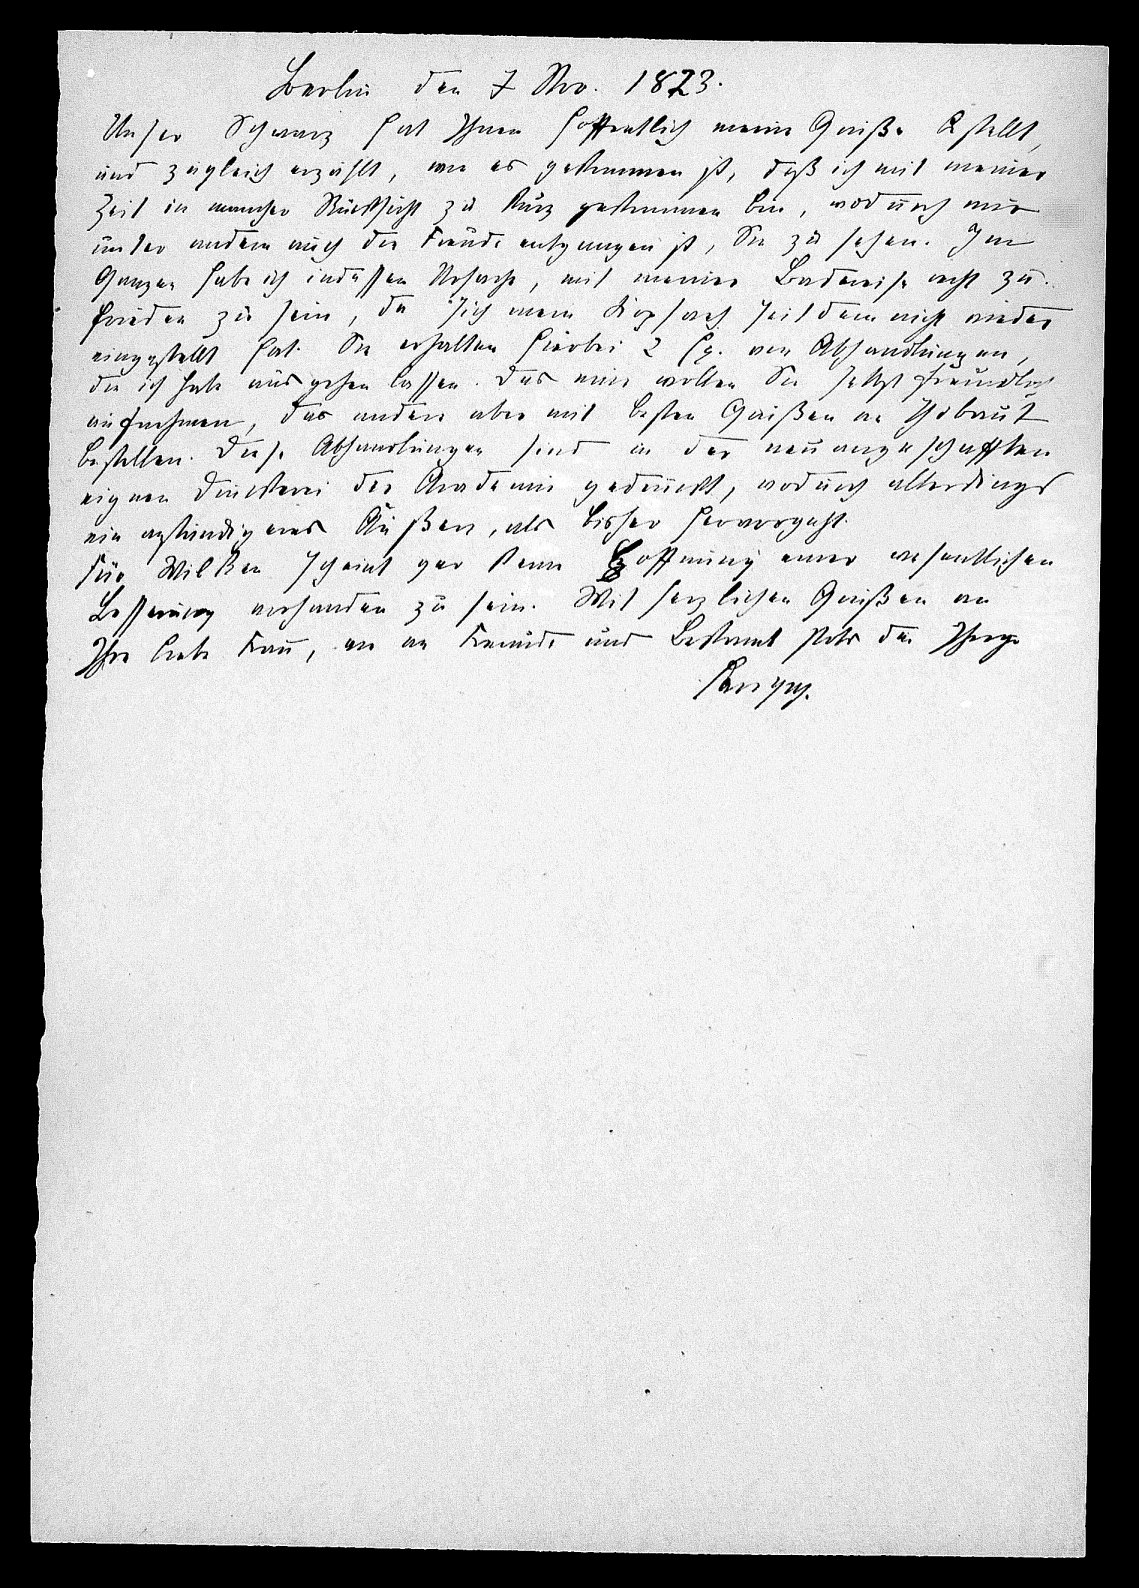 Berlin den 7 Nov. 1823.
Unser Schwarz hat Ihnen hoffentlich meine Grüße bestellt,
und zugleich erzählt, wie es gekommen ist, daß ich mit meiner
Zeit in mancher Rücksicht zu kurz gekommen bin, wodurch mir
unter andern auch die Freude entgangen ist, Sie zu sehen. Im
Ganzen habe ich indessen Ursache, mit meiner Badereise recht zu-
frieden zu sein, da sich mein Kopfweh seitdem nicht wieder
eingestellt hat. Sie erhalten hierbei 2 Ex. von Abhandlungen,
die ich habe ausgehen lassen. Das eine wollen Sie selbst freundlich
aufnehmen, das andere aber mit besten Grüßen an Thibaut
bestellen. Diese Abhandlungen sind in der neu angeschafften
eignen Druckerei der Academie gedruckt, wodurch allerdings
ein anständigeres Äußere, als bisher hervorgeht.
Für Wilken scheint gar keine Hoffnung einer wesentlichen
Besserung vorhanden zu sein. Mit herzlichen Grüßen an
Ihre liebe Frau, wie an Freunde und Bekannte stets der Ihrige
Savigny.